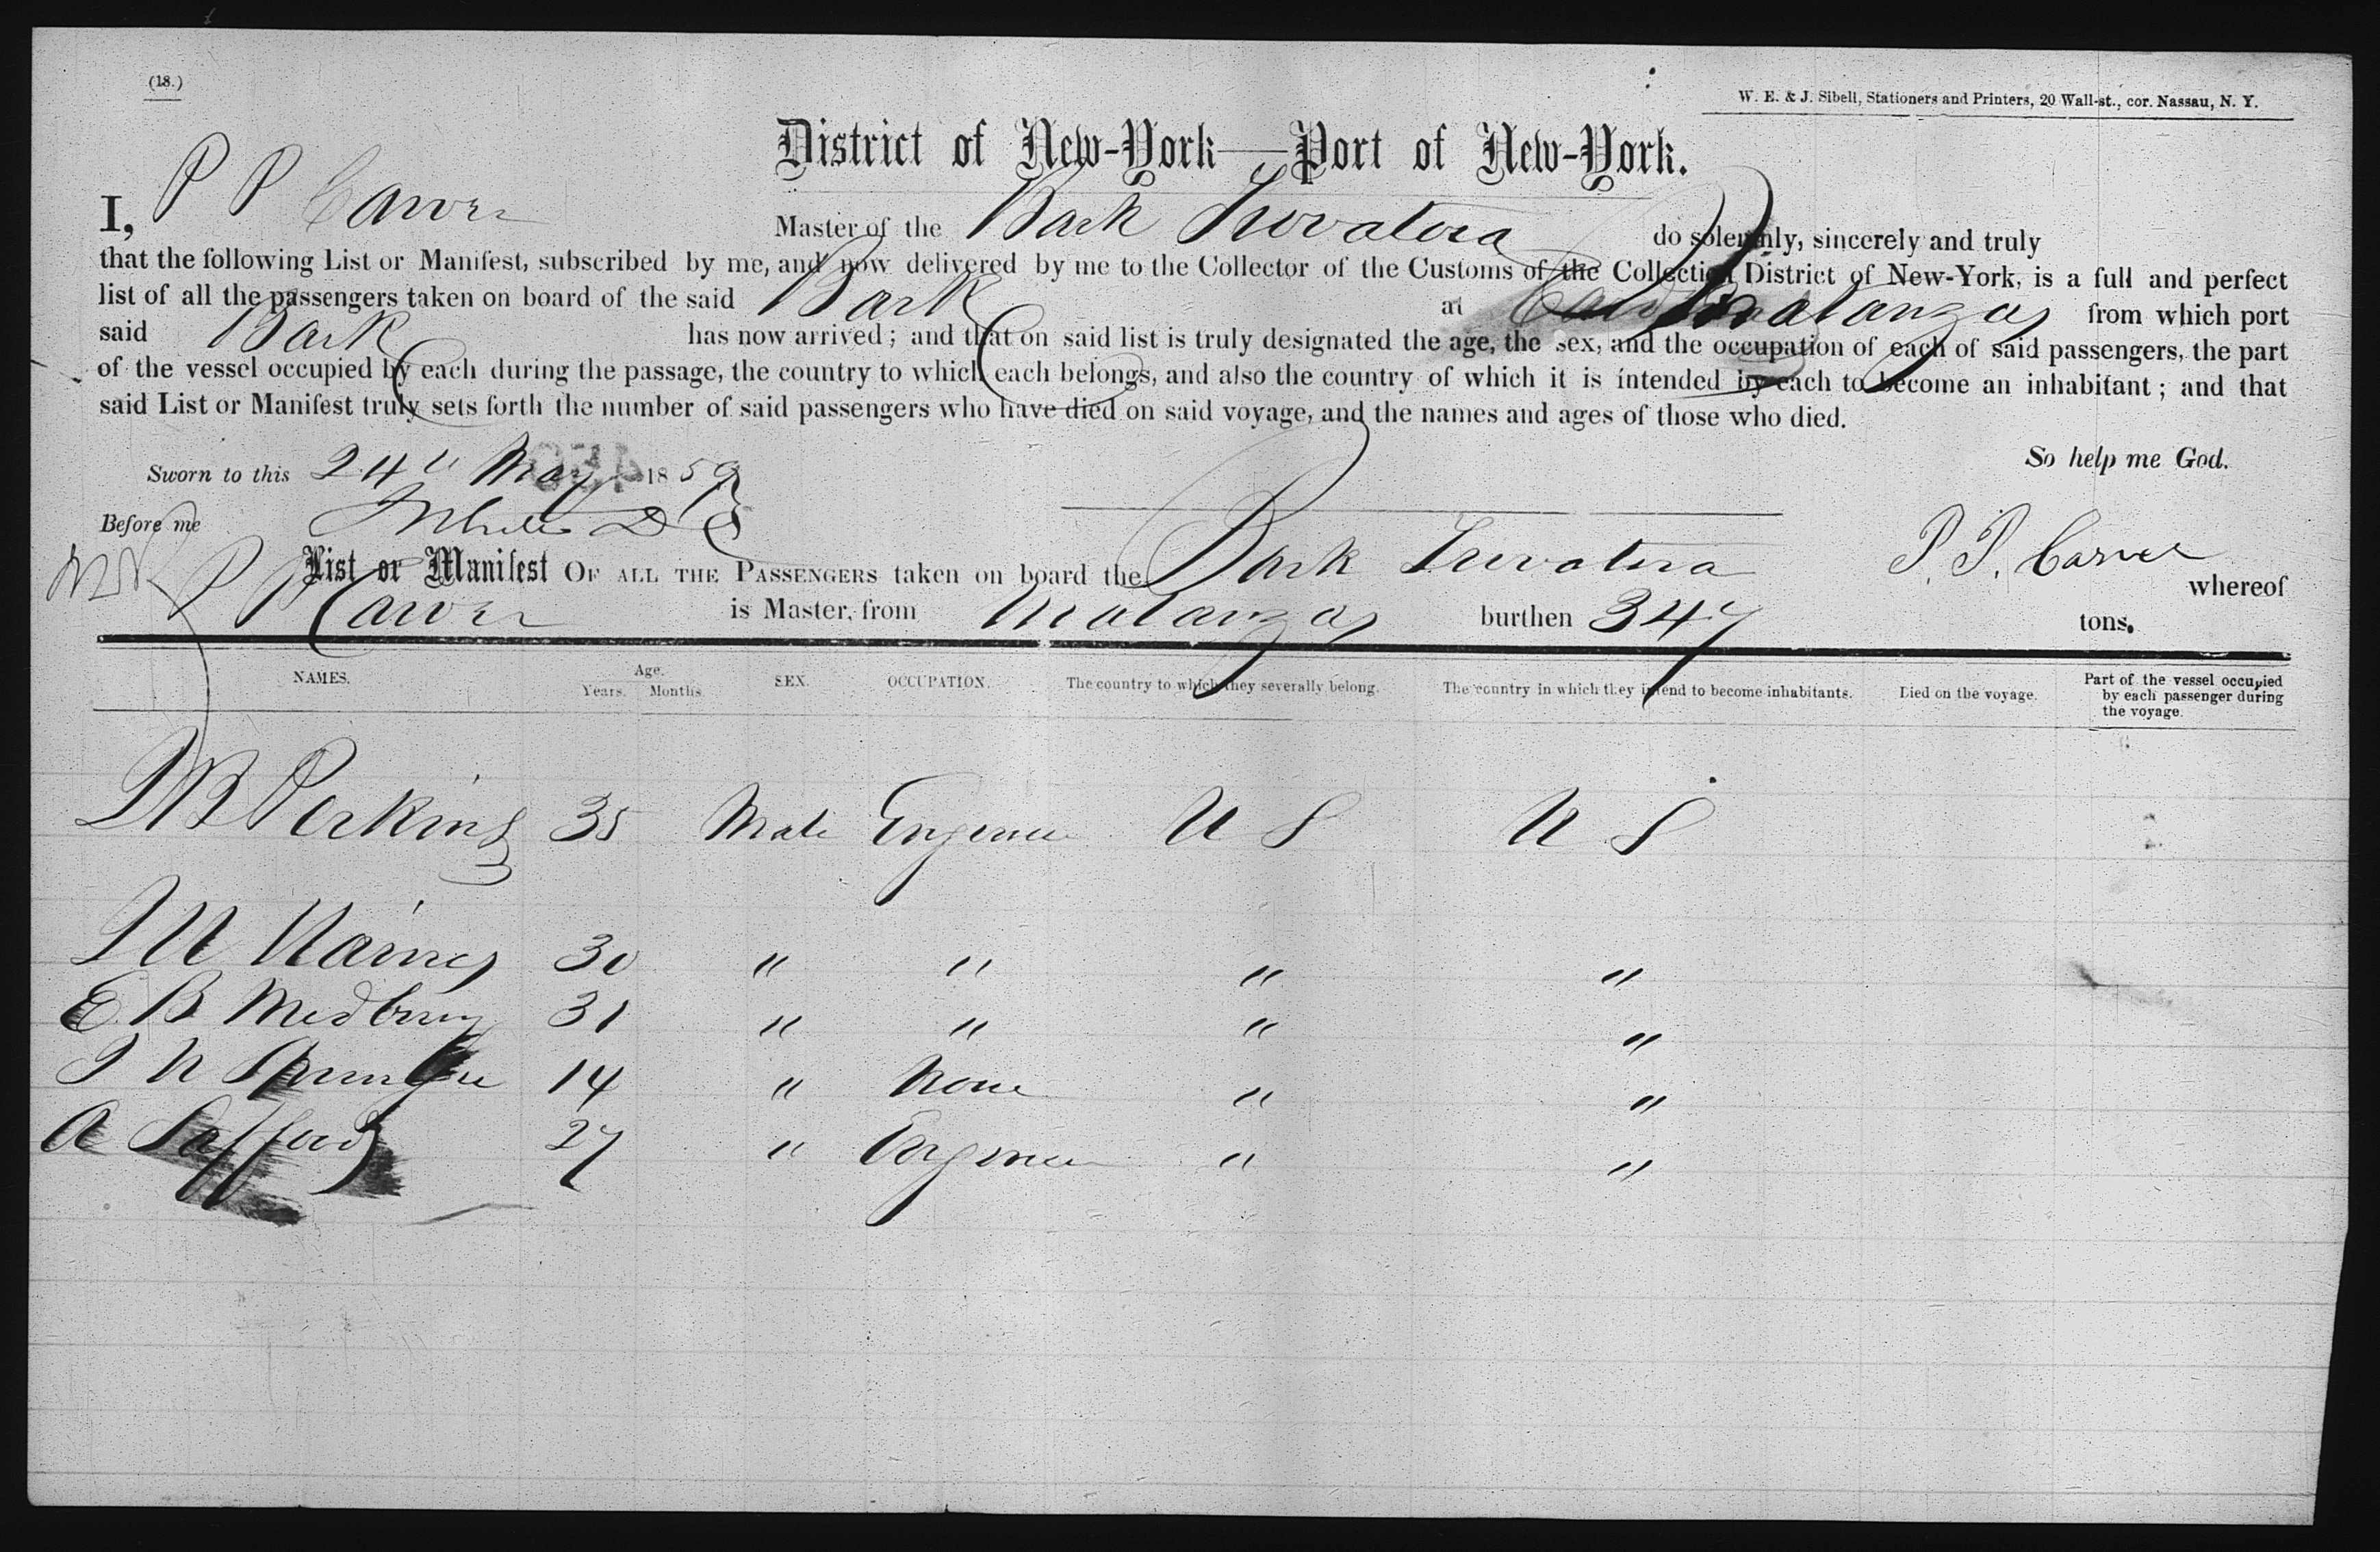 (18.)
W. E. & J. Sibell, Stationers and Printers, 20 Wall-st., cor. Nassau, N. Y.
District of New-York—Port of New-York.
I, P P Carver Master of the Bark Trovatora do solemnly, sincerely and truly
that the following List or Manifest, subscribed by me, and now delivered by me to the Collector of the Customs of the Collection District of New-York, is a full and perfect
list of all the passengers taken on board of the said Bark at Matanzas from which port
said Bark has now arrived; and that on said list is truly designated the age, the sex, and the occupation of each of said passengers, the part
of the vessel occupied by each during the passage, the country to which each belongs, and also the country of which it is intended by each to become an inhabitant; and that
said List or Manifest truly sets forth the number of said passengers who have died on said voyage, and the names and ages of those who died.
So help me God.
Sworn to this 24th May 1859
Before me
P. P. Carver
List or Manifest OF ALL THE PASSENGERS taken on board the Bark Trovatora whereof
P P Carver is Master, from Matanzas burthen 347 tons.
NAMES. Age. Years. Months. SEX. OCCUPATION. The country to which they severally belong. The country in which they intend to become inhabitants. Died on the voyage. Part of the vessel occupied by each passenger during the voyage.
Perkins 35 Male Engineer U S U S
30 " " " "
E B Medbury 31 " " " "
14 " None " "
A Safford 27 " Engineer " "